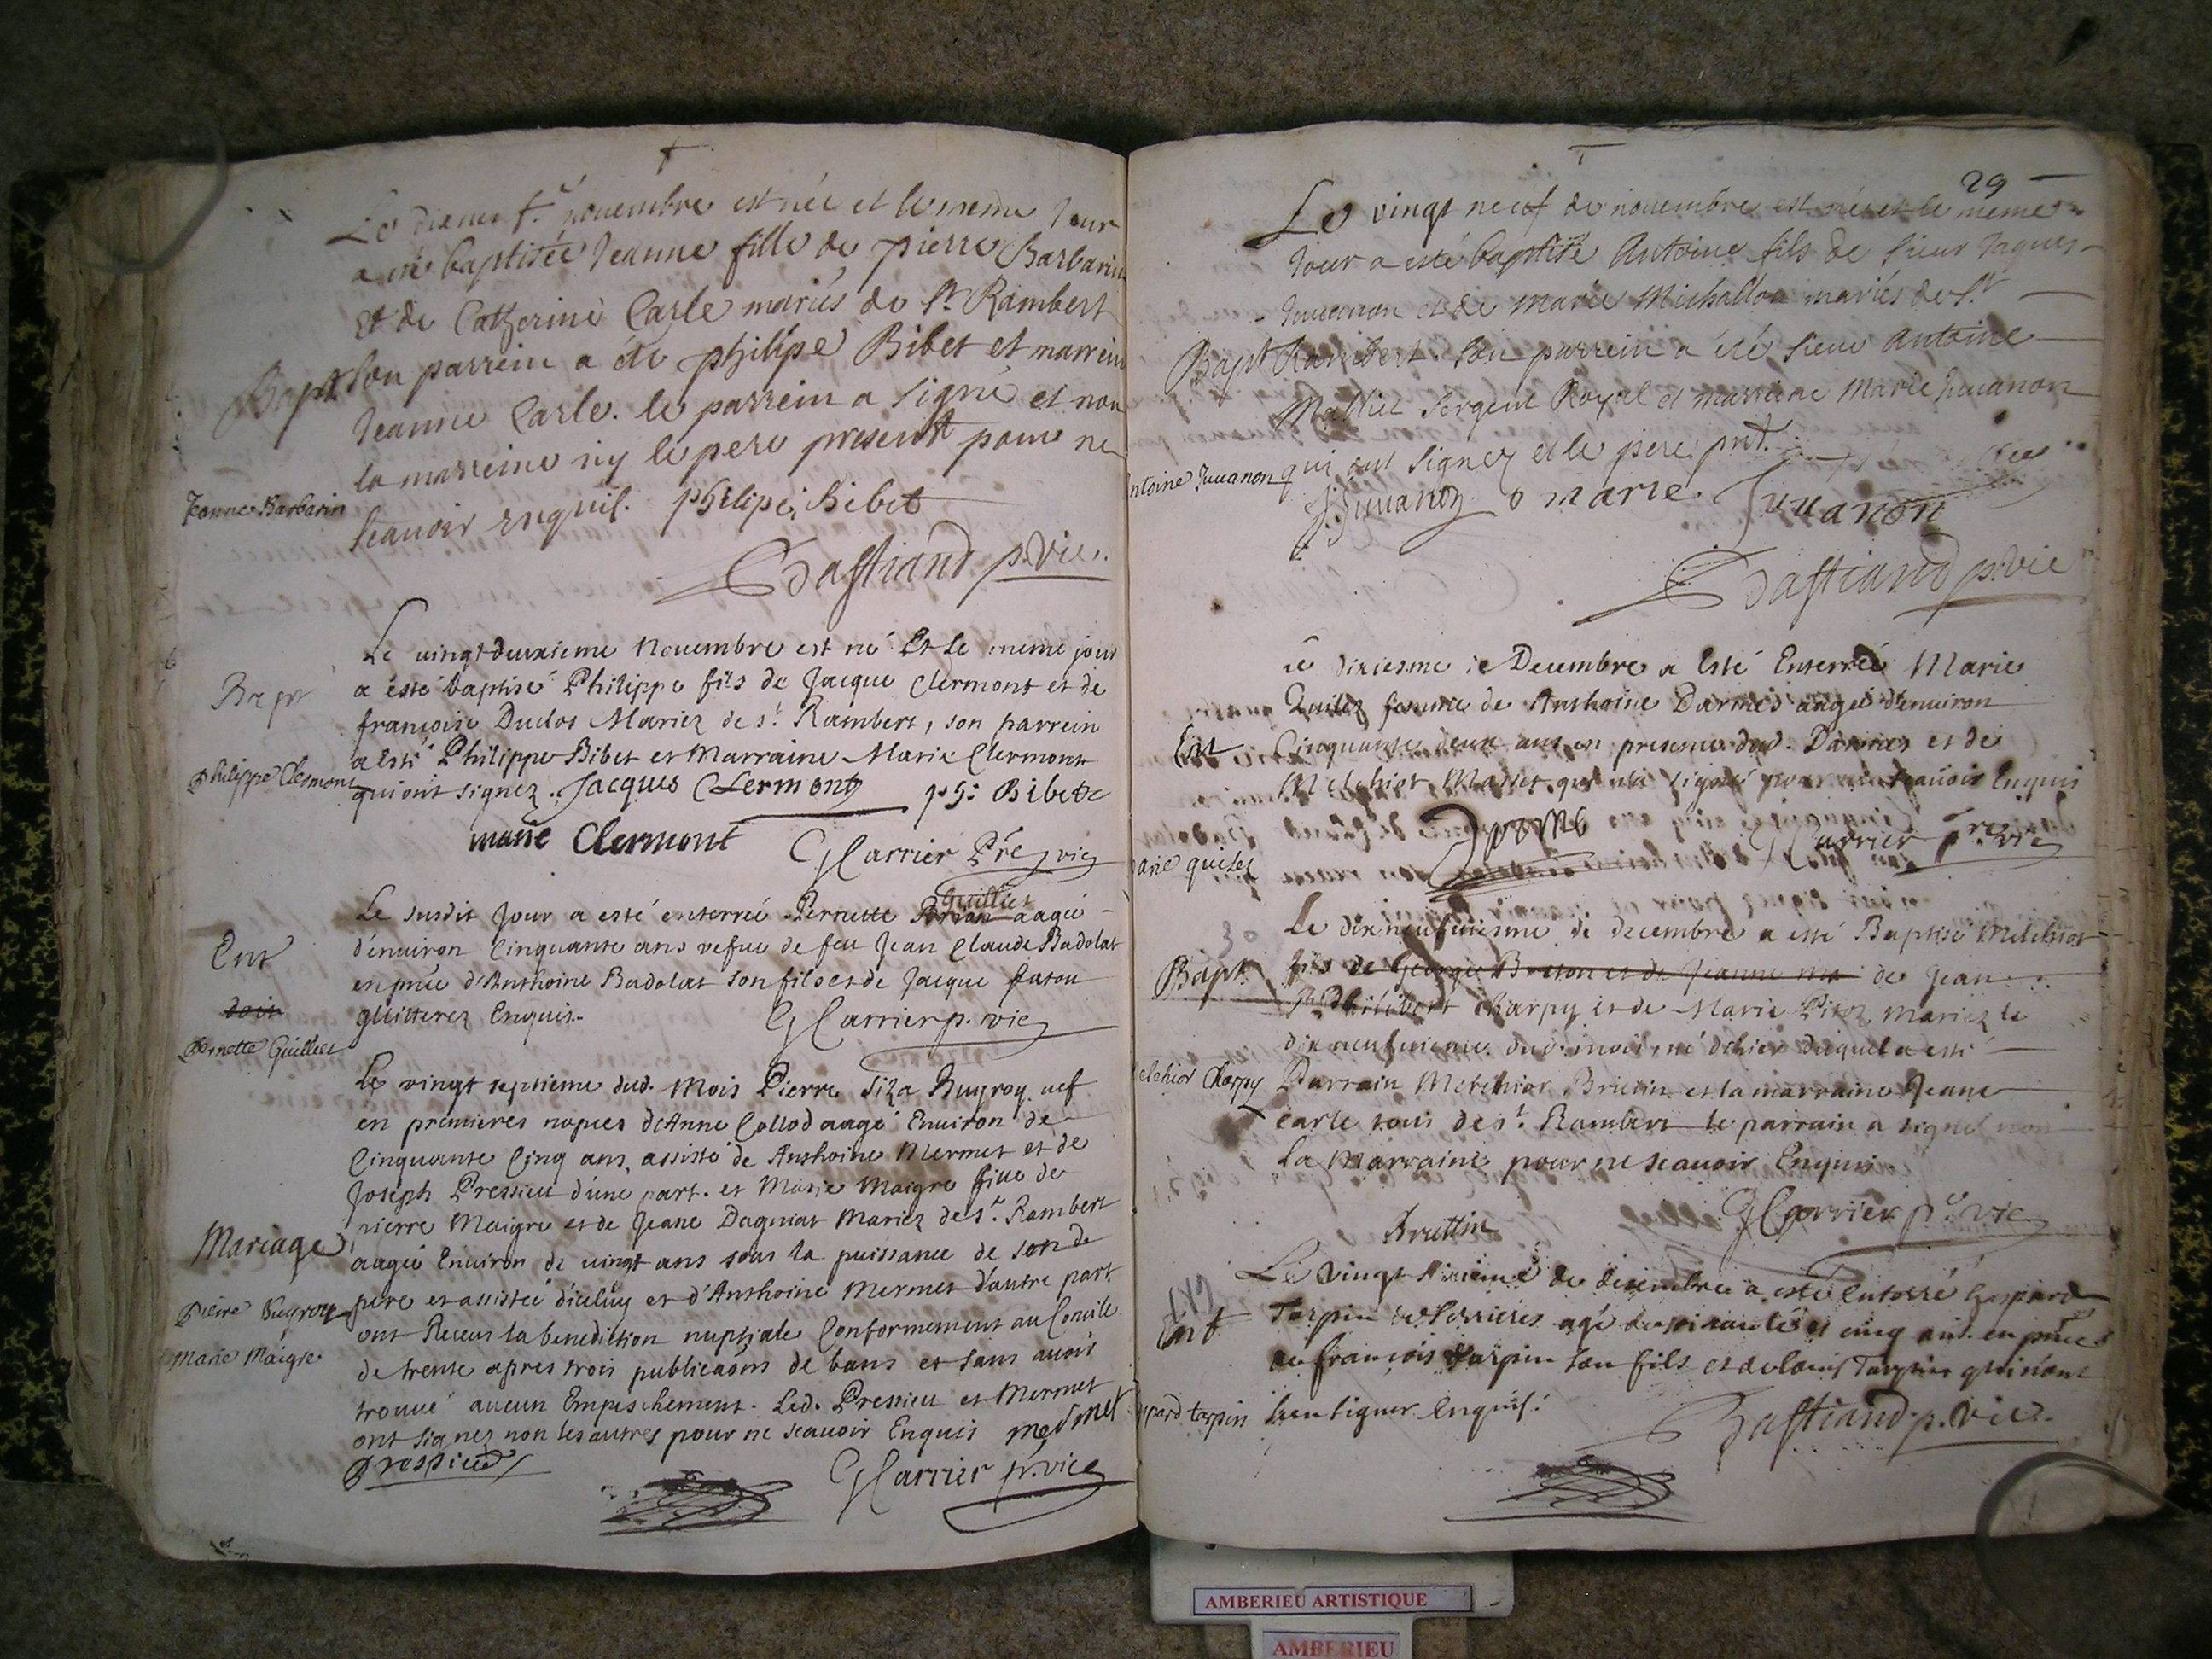 novembre est née et le meme Jour
a été baptisée Jeanne fille de pierre Barbarin
et de Catherine Carle mariés de St Rambert
Bapt son parrein a été philipe Bibet et marreine
Jeanne Carle. le parrein a signé et non
la marreine ny le pere present pour ne
Jeanne Barbarin
scavoir enquis. philipe Bibet
Bastiand p. vic.
Le vingt deuxieme Novembre est né Et Le meme jour
Bapt
a esté baptisé Philippe fils de Jacque Clermont et de
françoise Duclos Mariez de st Rambert, son parrein
a Esté Philippe Bibet et Marraine Marie Clermont
Philippe Clermont
qui ont signez. Jacques Clermont ph: Bibet
marie Clermont GCarrier Pre vic
Guilliet
Le susdit Jour a esté enterrée Pernette aagée
Ent
d'environ Cinquante ans vefve de feu Jean Claude Badolat
en pnce d'Anthoine Badolat son fils et de Jacque
enquis. GCarrier p. vic
Pernette Guilliet
Le vingt septieme dud. Mois Pierre Buyroy vef
en premieres nopces d'Anne Collod aagé Environ de
Cinquante Cinq ans, assisté de Anthoine Mermet et de
Joseph Pressieu d'une part. et Marie Maigre fille de
pierre Maigre et de Jeane Dagniat Mariez de st Rambert
Mariage
aagée Environ de vingt ans sous la puissance de son de
pere et assistée d'iceluy et d'Anthoine Mermet d'autre part
Pierre Buyroy
ont Receus la benediction nuptiale Conformement au Concile
Marie Maigre
de trente apres trois publicaons de bans et sans avoir
trouvé aucun Empeschement. Led. Pressieu et Mermet
ont signez non les autres pour ne scavoir Enquis mermet
pressieu GCarrier p. vic
29
Le vingt neuf de novembre est né et le meme
Jour a esté baptisé Antoine fils de sieur Jaques
Juvanon et de marie Michallon mariés de St
Bapt Rambert. son parrein a été sieur Antoine
sergent Royal et marreine Marie Juvanon
Antoine Juvanon qui ont signez et le pere pnt.
J. Juvanon marie Juvanon
Bastiand p. vic
Le dixiesme de Decembre a Esté Enterrée Marie
Quilez femme de Anthoine Darmes aagée d'environ
Ent Cinquante deux ans en presence dud. Darmes et de
Melchiot scavoir Enquis
GCarrier pre vic
Marie quilez
Le dixneufviesme de decembre a esté Baptisé Melchiot
Bapt. fils de George Breton et de Jeanne de Jean
Philibert Charpy et de Marie Mariez le
dixneufvieme dud. mois né d'hier duquel a esté
Melchior Charpy Parrain Melchior Bruttin et la marraine Jeane
carle tous de st Rambert le parrain a signé non
La Marraine pour ne scavoir Enquis.
Bruttin GCarrier pr vic
Le vingt sixieme de decembre a esté enterré Gaspard
Ent Tarpin agé de et cinq ans en pnce
de françois Tarpin son fils et de Tarpin qui n'ont
Gaspard tarpin sceu signer enquis.
Bastiand p. vic.
AMBERIEU ARTISTIQUE
AMBERIEU